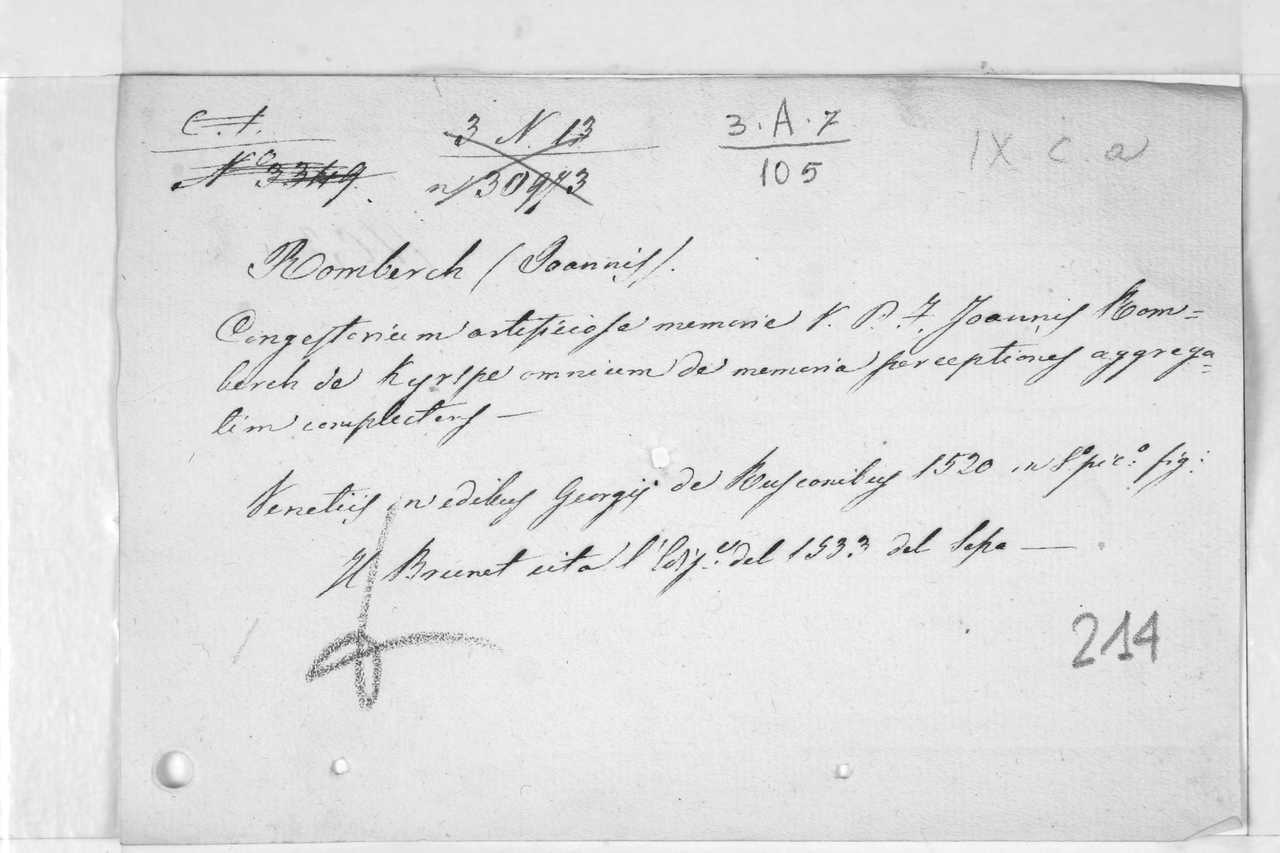 C. I.
3 N. 13
3. A. 7
IX. C. a
Nº 3349.
n/ 30973
105
Romberch (Joannis).
Congestorium artificiosa memorie V. P. F. Joannis Rom=
berch de Kyrspe omnium de memoria perceptiones aggrega=
tim complectens —
Venetiis in edibus Georgij de Rusconibus 1520 in 8º picº. fig:
Il Brunet cita l'Edizne. del 1533 del Sepa —
214